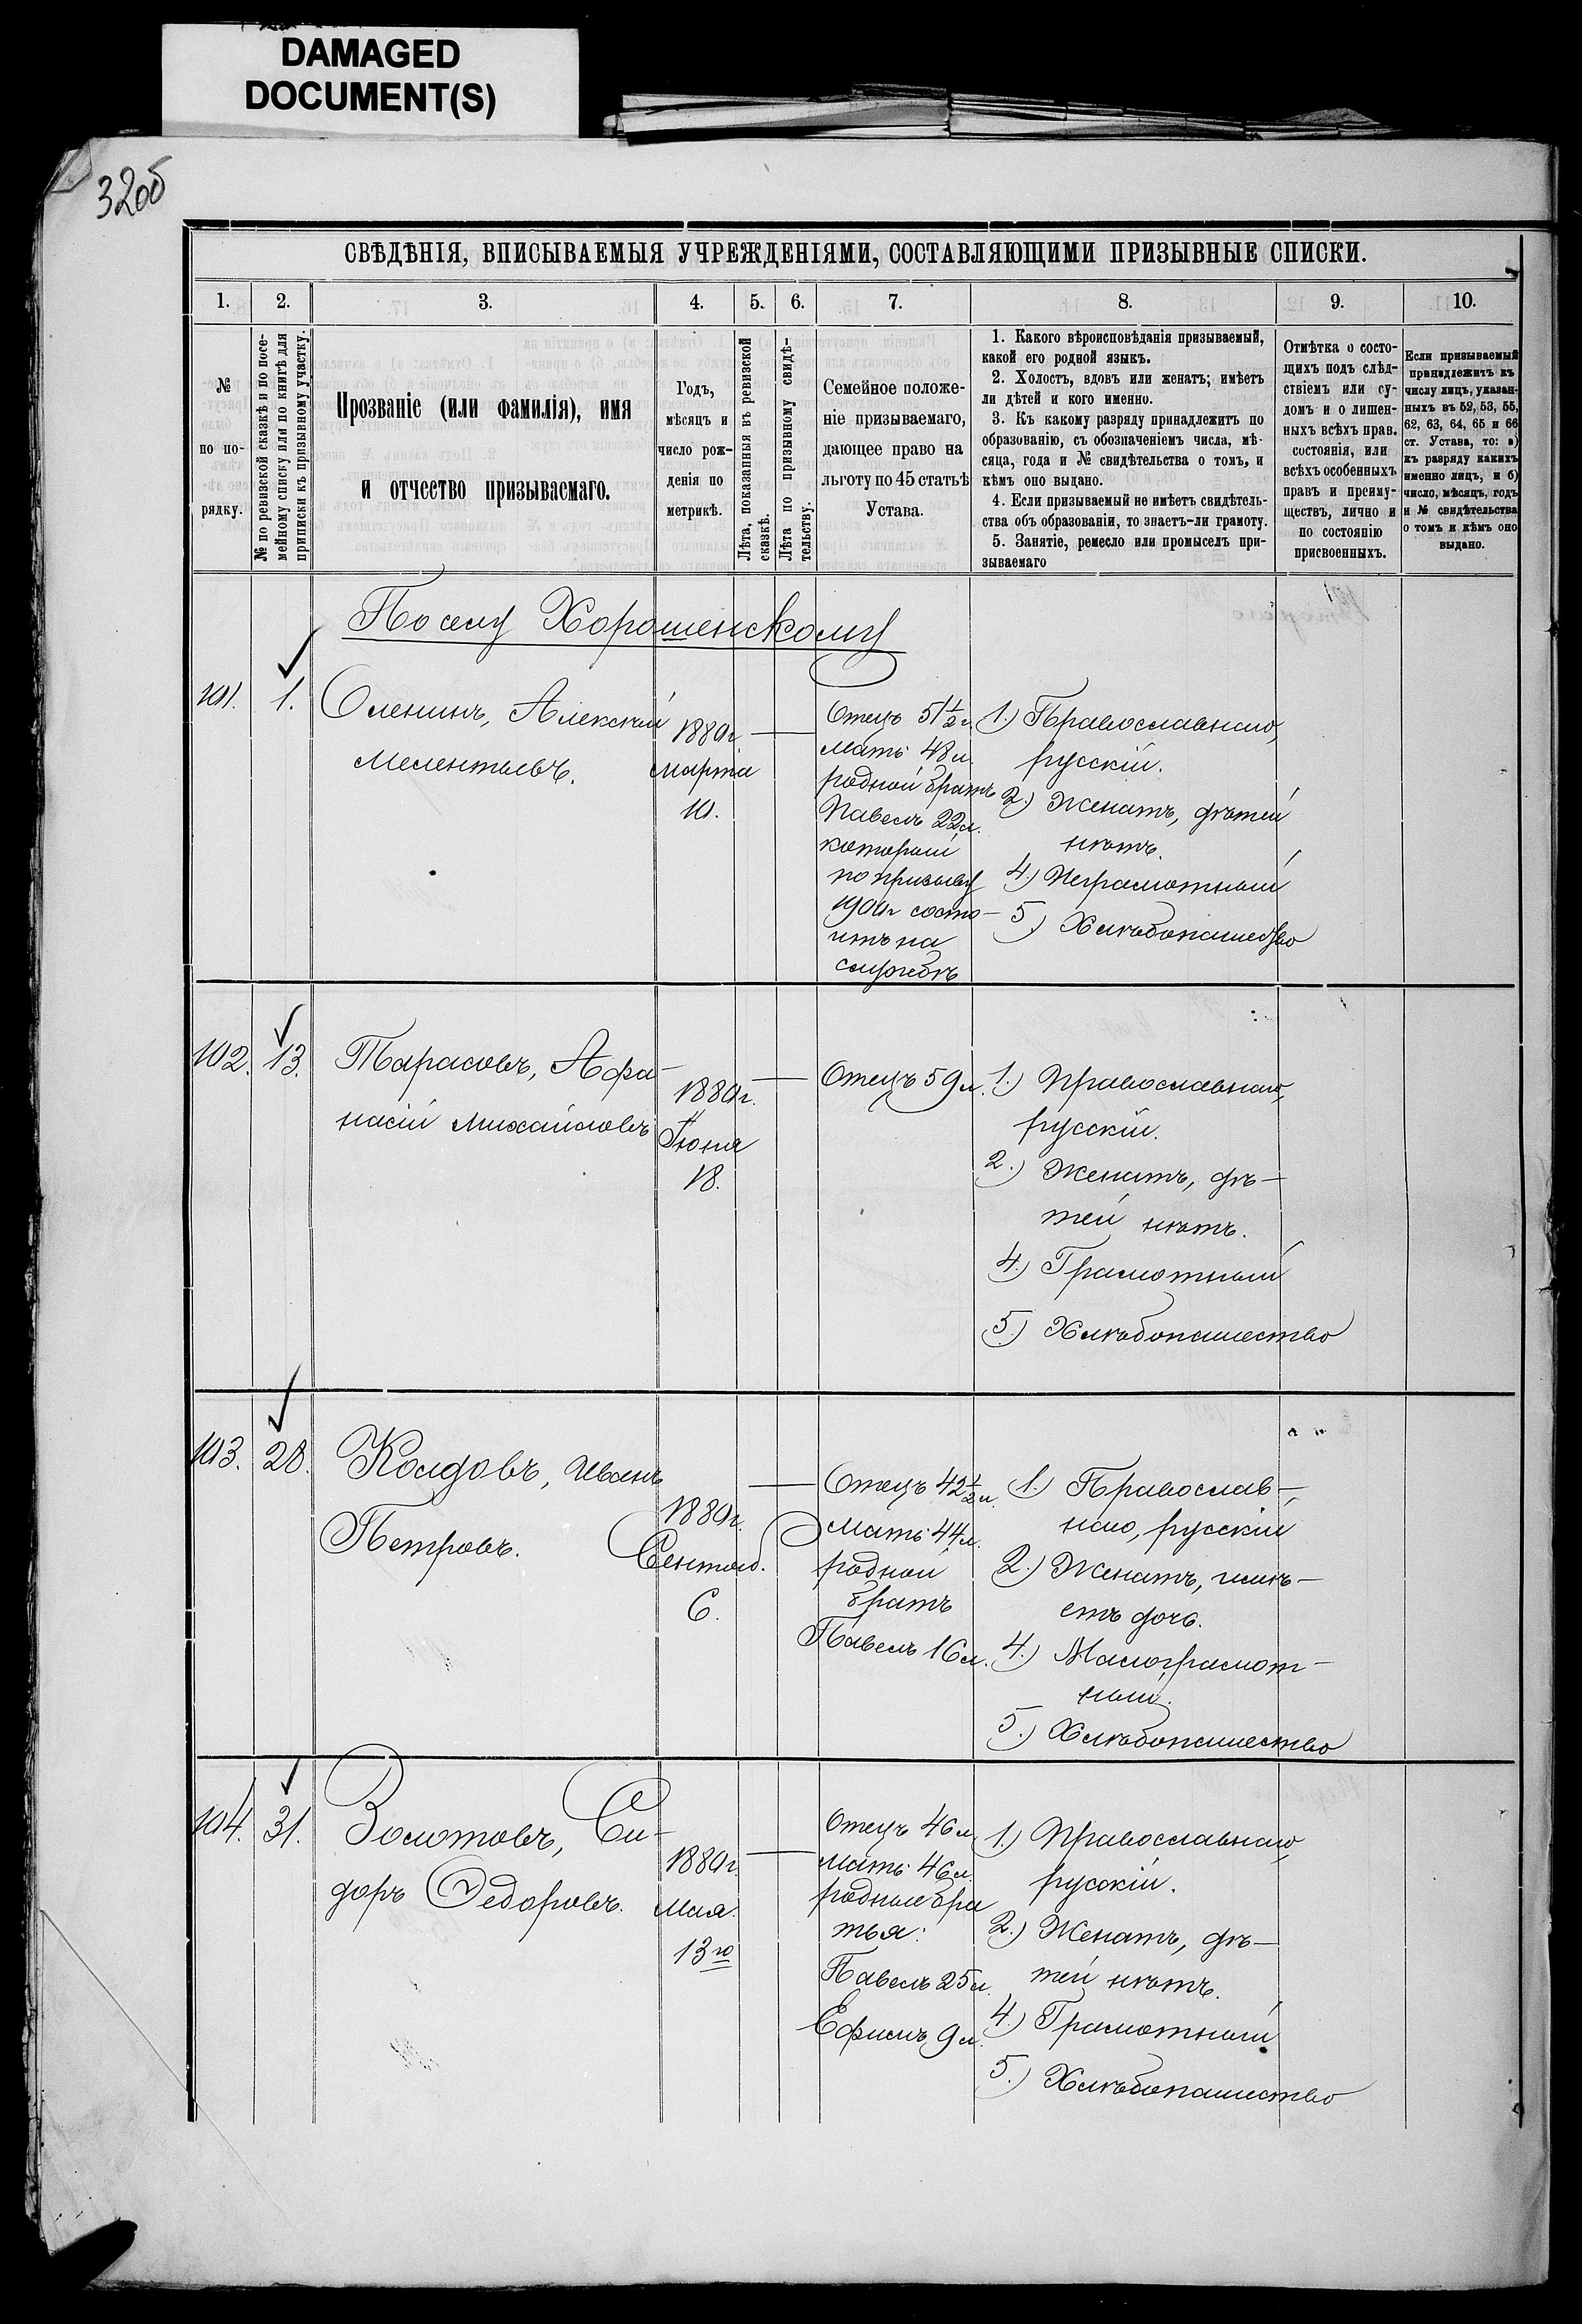 DAMAGED
DOCUMENT(S)
32об
СВѢДѢНІЯ, ВПИСЫВАЕМЫЯ УЧРЕЖДЕНІЯМИ, СОСТАВЛЯЮЩИМИ ПРИЗЫВНЫЕ СПИСКИ.
1. 2. 3. 4. 5. 6. 7. 8. 9. 10.
№
по по-
рядку.
№ по ревизской сказкѣ и по посе-
мейному списку или по книгѣ для
приписки къ призывному участку.
Прозваніе (или фамилія), имя
и отчество призываемаго.
Годъ,
мѣсяцъ и
число рож-
денія по
метрикѣ.
Лѣта, показанныя въ ревизской
сказкѣ.
Лѣта по призывному свидѣ-
тельству.
Семейное положе-
ніе призываемаго,
дающее право на
льготу по 45 статьѣ
Устава.
1. Какого вѣроисповѣданія призываемый,
какой его родной языкъ.
2. Холостъ, вдовъ или женатъ; имѣетъ
ли дѣтей и кого именно.
3. Къ какому разряду принадлежитъ по
образованію, съ обозначеніемъ числа, мѣ-
сяца, года и № свидѣтельства о томъ, и
кѣмъ оно выдано.
4. Если призываемый не имѣетъ свидѣтель-
ства объ образованіи, то знаетъ-ли грамоту.
5. Занятіе, ремесло или промыселъ при-
зываемаго
Отмѣтка о состо-
щихъ подъ слѣд-
ствіемъ или су-
домъ и о лишен-
ныхъ всѣхъ прав.
состоянія, или
всѣхъ особенныхъ
правъ и преиму-
ществъ, лично и
по состоянію
присвоенныхъ.
Если призываемый
принадлежитъ къ
числу лицъ, указан-
ныхъ въ 52, 53, 55,
62, 63, 64, 65 и 66
ст. Устава, то: а)
къ разряду какихъ
именно лицъ, и б)
число, мѣсяцъ, годъ
и № свидѣтельства
о томъ и кѣмъ оно
выдано.
По селу Хорошенскому
101. 1.
Оленинъ, Алексѣй
Мелентьевъ.
1880г.
марта
10.
Отецъ 51½ л.
мать 48 л.
родной братъ
Павелъ 22 л.
который
по призыву
1900г состо-
итъ на
службѣ
1.) Православнаго,
русскій.
2.) Женатъ, дѣтей
нѣтъ.
4.) Неграмотный
5.) Хлѣбопашество
102. 13.
Тарасовъ, Афа-
насій Михайловъ
1880г.
Іюня
18.
Отецъ 59 л.
1.) Православнаго,
русскій.
2.) Женатъ, дѣ-
тей нѣтъ.
4.) Грамотный
5.) Хлѣбопашество
103. 28.
Колдовъ, Иванъ
Петровъ.
1880г.
Сентяб.
6.
Отецъ 42½ л.
мать 44 л.
родной
братъ
Павелъ 16 л.
1.) Православ-
наго, русскій
2.) Женатъ, имѣ-
етъ дочь.
4.) Малограмот-
ный.
5.) Хлѣбопашество
104. 31.
Золотовъ, Си-
доръ Ѳедоровъ.
1880г.
Мая.
13го
Отецъ 46 л.
мать 46 л.
родные бра
тья:
Павелъ 25 л.
Ефимъ 9 л.
1.) Православнаго,
русскій.
2.) Женатъ, дѣ-
тей нѣтъ.
4.) Грамотный.
5.) Хлѣбопашество